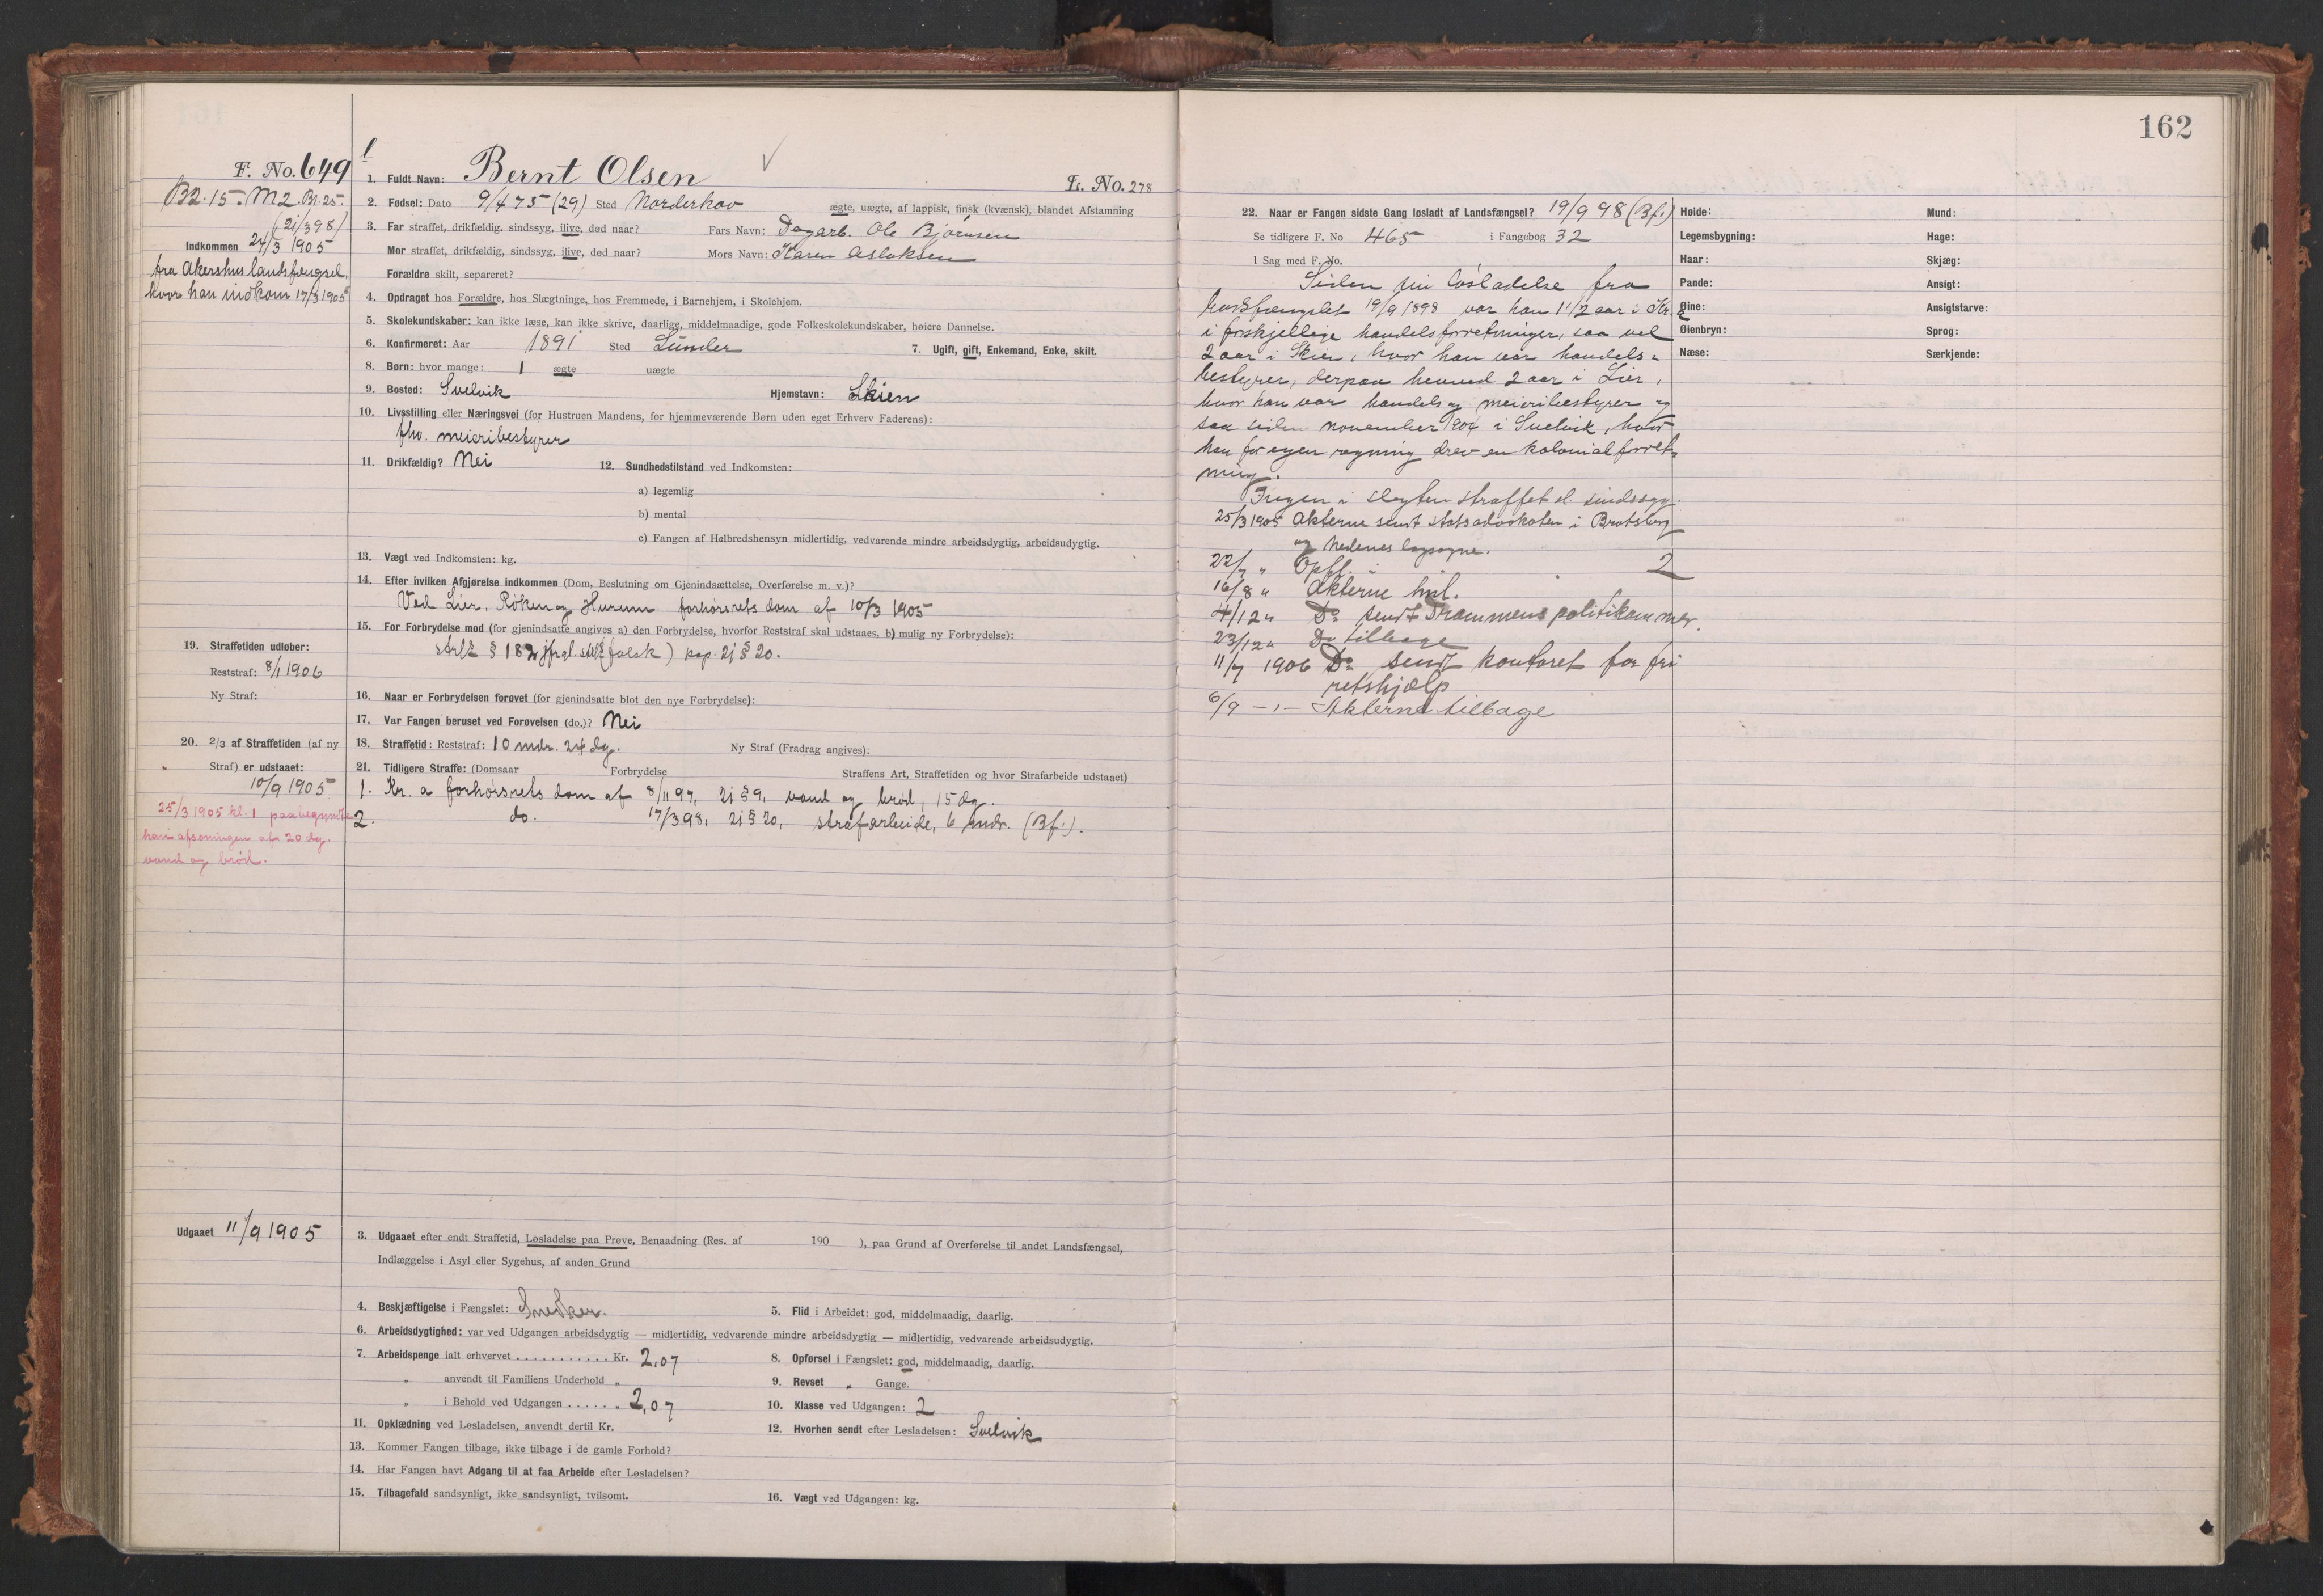 162
F. No. 649
B2. 15. M2. Br. 25.
(21/3 98)
Indkommen 24/3 1905
fra Akershus landsfængsel,
hvor han indkom 17/3 1905
1. Fuldt Navn: Bernt Olsen
L. No. 278
2. Fødsel: Dato 9/4 75 (29) Sted Norderhov ægte, uægte, af lappisk, finsk (kvænsk), blandet Afstamning
3. Far straffet, drikfældig, sindssyg, ilive, død naar? Fars Navn: Dagarb. Ole Bjørnsen
Mor straffet, drikfældig, sindssyg, ilive, død naar? Mors Navn: Karen Aslaksen
Forældre skilt, separeret?
4. Opdraget hos Forældre, hos Slægtninge, hos Fremmede, i Barnehjem, i Skolehjem.
5. Skolekundskaber: kan ikke læse, kan ikke skrive, daarlige, middelmaadige, gode Folkeskolekundskaber, høiere Dannelse.
6. Konfirmeret: Aar 1891 Sted Lunder 7. Ugift, gift, Enkemand, Enke, skilt.
8. Børn: hvor mange: 1 ægte uægte
9. Bosted: Svelvik Hjemstavn: Skien
10. Livsstilling eller Næringsvei (for Hustruen Mandens, for hjemmeværende Børn uden eget Erhverv Faderens):
fhv. meieribestyrer
11. Drikfældig? Nei 12. Sundhedstilstand ved Indkomsten:
a) legemlig
b) mental
c) Fangen af Helbredshensyn midlertidig, vedvarende mindre arbeidsdygtig, arbeidsudygtig.
13. Vægt ved Indkomsten: kg.
14. Efter hvilken Afgjørelse indkommen (Dom, Beslutning om Gjenindsættelse, Overførelse m. v.)?
Ved Lier, Røken og Hurum forhørsrets dom af 10/3 1905
15. For Forbrydelse mod (for gjenindsatte angives a) den Forbrydelse, hvorfor Reststraf skal udstaaes, b) mulig ny Forbrydelse):
strfl § 182 jfr. gl. strfl (falsk) kap. 21 § 20.
19. Straffetiden udløber:
Reststraf: 8/1 1906
Ny Straf:
16. Naar er Forbrydelsen forøvet (for gjenindsatte blot den nye Forbrydelse):
17. Var Fangen beruset ved Forøvelsen (do.)? Nei
20. 2/3 af Straffetiden (af ny
Straf) er udstaaet:
10/9 1905
18. Straffetid: Reststraf: 10 mdr. 24 dg. Ny Straf (Fradrag angives):
21. Tidligere Straffe: (Domsaar Forbrydelse Straffens Art, Straffetiden og hvor Strafarbeide udstaaet)
1. Kr. a forhørsrets dom af 8/11 97, 21 § 9, vand og brød, 15 dg.
2. do. 17/3 98, 21 § 20, strafarbeide, 6 mdr. (Bf.).
25/3 1905 kl. 1 paabegyndte
han afsoningen af 20 dg.
vand og brød.
Udgaaet 11/9 1905
3. Udgaaet efter endt Straffetid, Løsladelse paa Prøve, Benaadning (Res. af 190 ), paa Grund af Overførelse til andet Landsfængsel,
Indlæggelse i Asyl eller Sygehus, af anden Grund
4. Beskjæftigelse i Fængslet: Snedker. 5. Flid i Arbeidet: god, middelmaadig, daarlig.
6. Arbeidsdygtighed: var ved Udgangen arbeidsdygtig — midlertidig, vedvarende mindre arbeidsdygtig — midlertidig, vedvarende arbeidsudygtig.
7. Arbeidspenge ialt erhvervet ........... Kr. 2,07 8. Opførsel i Fængslet: god, middelmaadig, daarlig.
" anvendt til Familiens Underhold " 9. Revset " Gange.
" i Behold ved Udgangen ...... " 2,07 10. Klasse ved Udgangen: 2
11. Opklædning ved Løsladelsen, anvendt dertil Kr. 12. Hvorhen sendt efter Løsladelsen: Svelvik
13. Kommer Fangen tilbage, ikke tilbage i de gamle Forhold?
14. Har Fangen havt Adgang til at faa Arbeide efter Løsladelsen?
15. Tilbagefald sandsynligt, ikke sandsynligt, tvilsomt. 16. Vægt ved Udgangen: kg.
22. Naar er Fangen sidste Gang løsladt af Landsfængsel? 19/9 98 (Bf.)
Se tidligere F. No 465 i Fangebog 32
I Sag med F. No.
Siden sin løsladelse fra
19/9 1898 var han 1 1/2 aar i Kr. a
i forskjellige handelsforretninger, saa vel
2 aar i Skien, hvor han var handels-
bestyrer, derpaa henved 2 aar i Lier,
hvor han var handels og meieribestyrer og
saa siden november 1904 i Svelvik, hvor
han for egen regning drev en kolonialforret-
ning.
Ingen i slegten straffet el. sindssyg.
25/3 1905 Akterne sendt statsadvokaten i Bratsberg
og Nedenes lagsogne.
22/7 " Opfl. 2
16/8 " Akterne hml.
4/12 " Do sendt Drammens politikammer.
23/12 " Do tilbage
11/7 1906 Do sendt kontoret for fri
retshjælp
6/9 — " — Akterne tilbage
Høide: Mund:
Legemsbygning: Hage:
Haar: Skjæg:
Pande: Ansigt:
Øine: Ansigtsfarve:
Øienbryn: Sprog:
Næse: Særkjende: